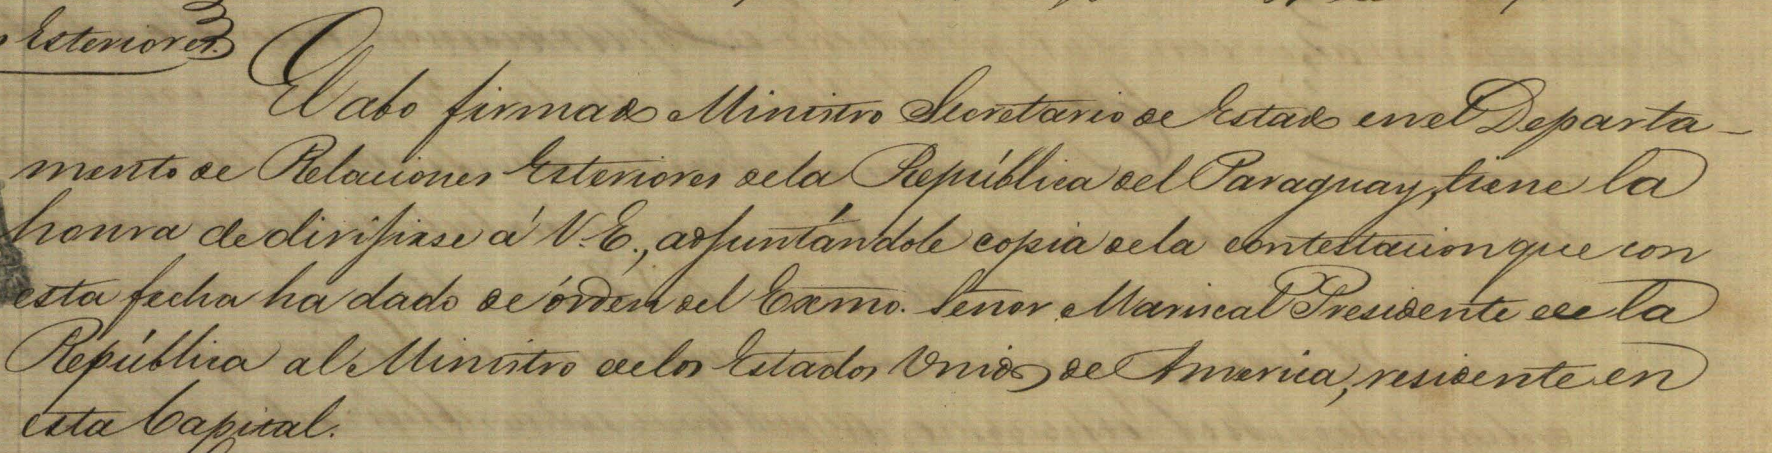 Esteriores.
El abo firmado Ministro Secretario de Estado en el Departa-
mento de Relaciones Esteriores de la República del Paraguay, tiene la
honra de dirijirse á V.E., adjuntándole copia de la contestacion que con
esta fecha ha dado de órden del Exmo. Señor Mariscal Presidente de la
República al Ministro de los Estados Unidos de America, residente en
esta Capital.